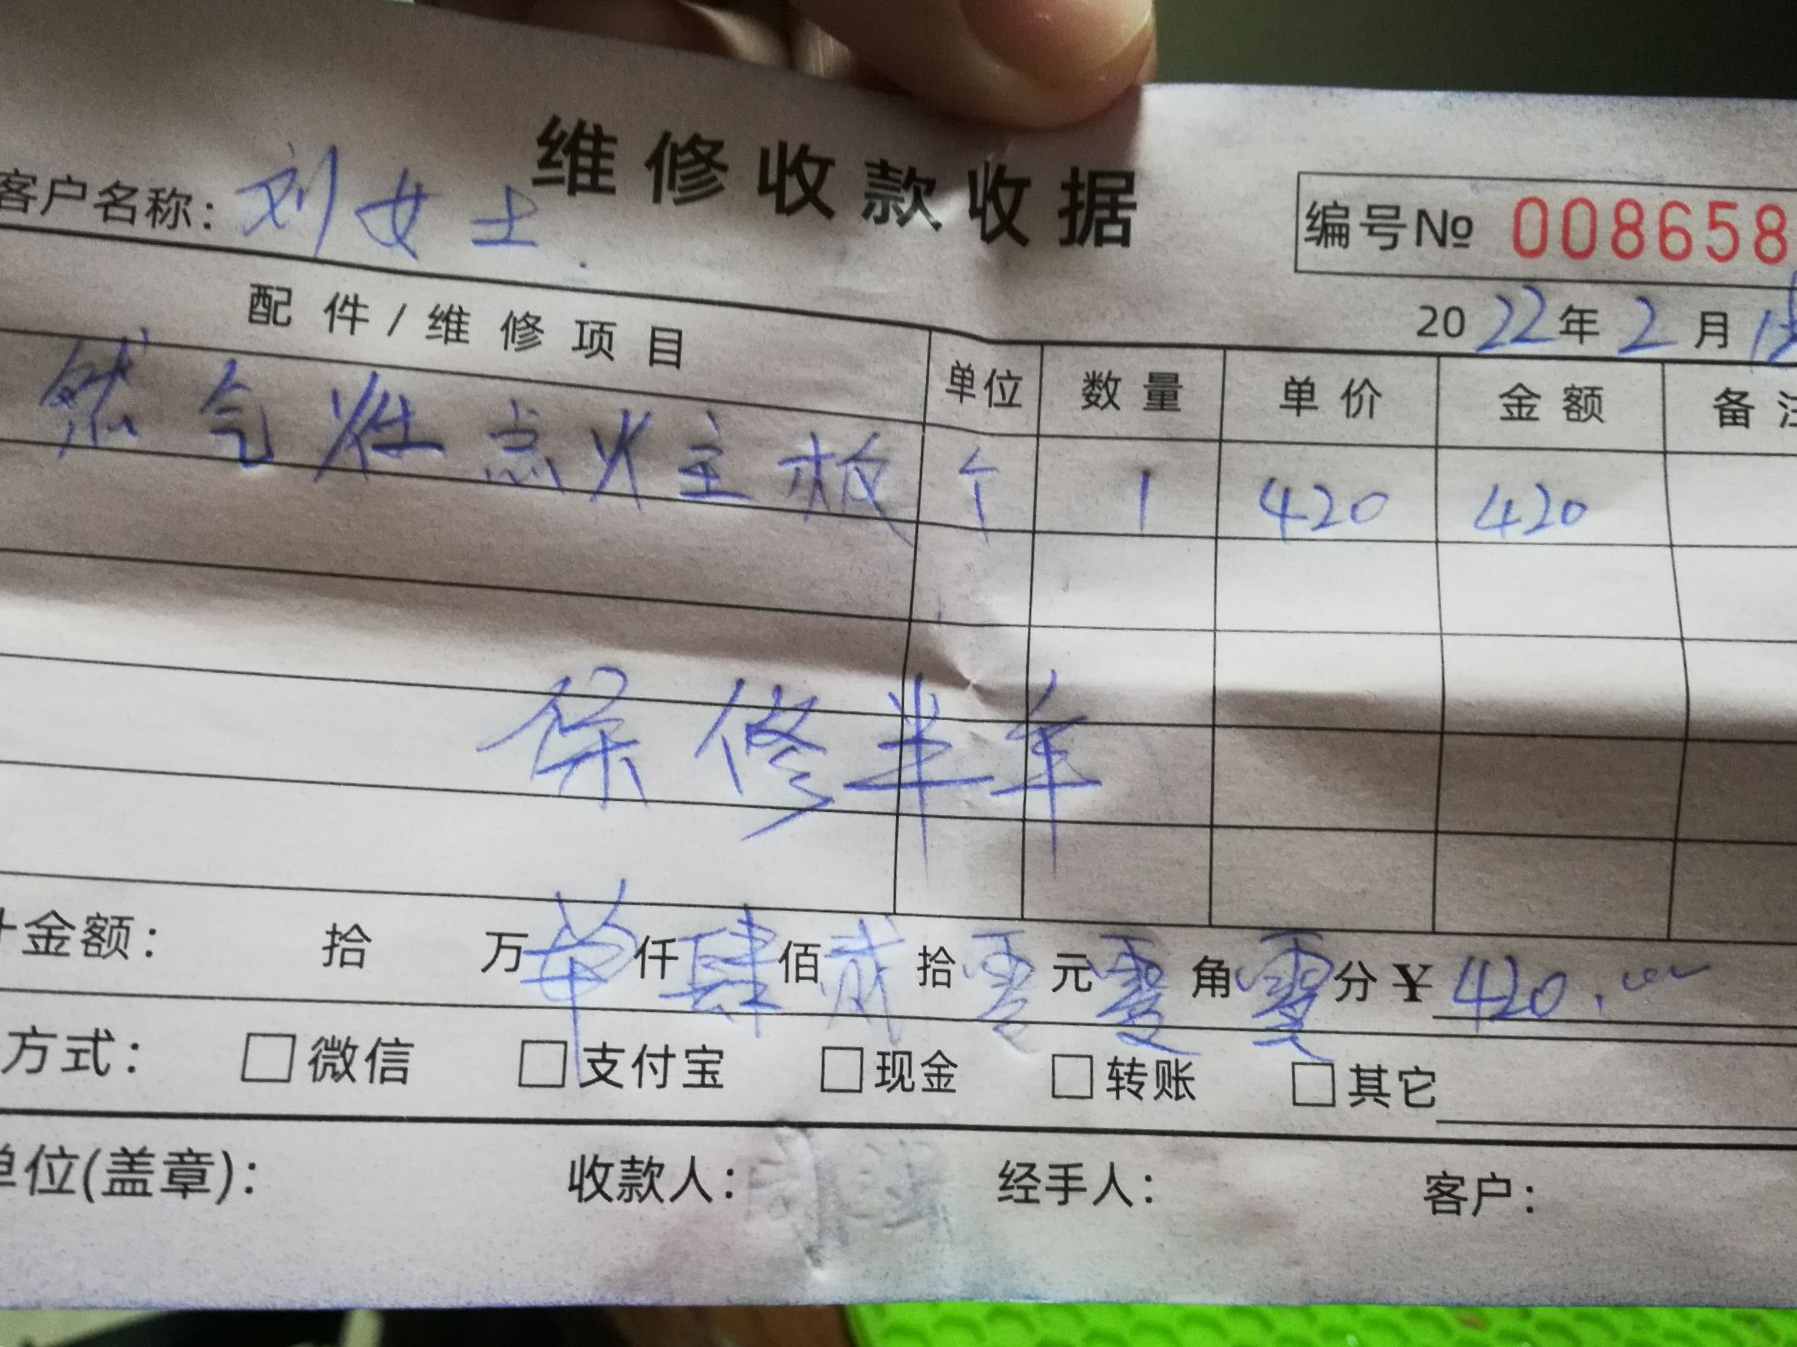 维修收款收据
客户名称：刘女士
编号№ 008658
2022年2月
配件/维修项目 单位 数量 单价 金额 备注
然气灶点火主板 个 1 420 420
保修半年
计金额： 拾 万 仟肆佰贰拾零元零角零分￥420.00
方式： □微信 □支付宝 □现金 □转账 □其它
单位(盖章)： 收款人： 经手人： 客户：